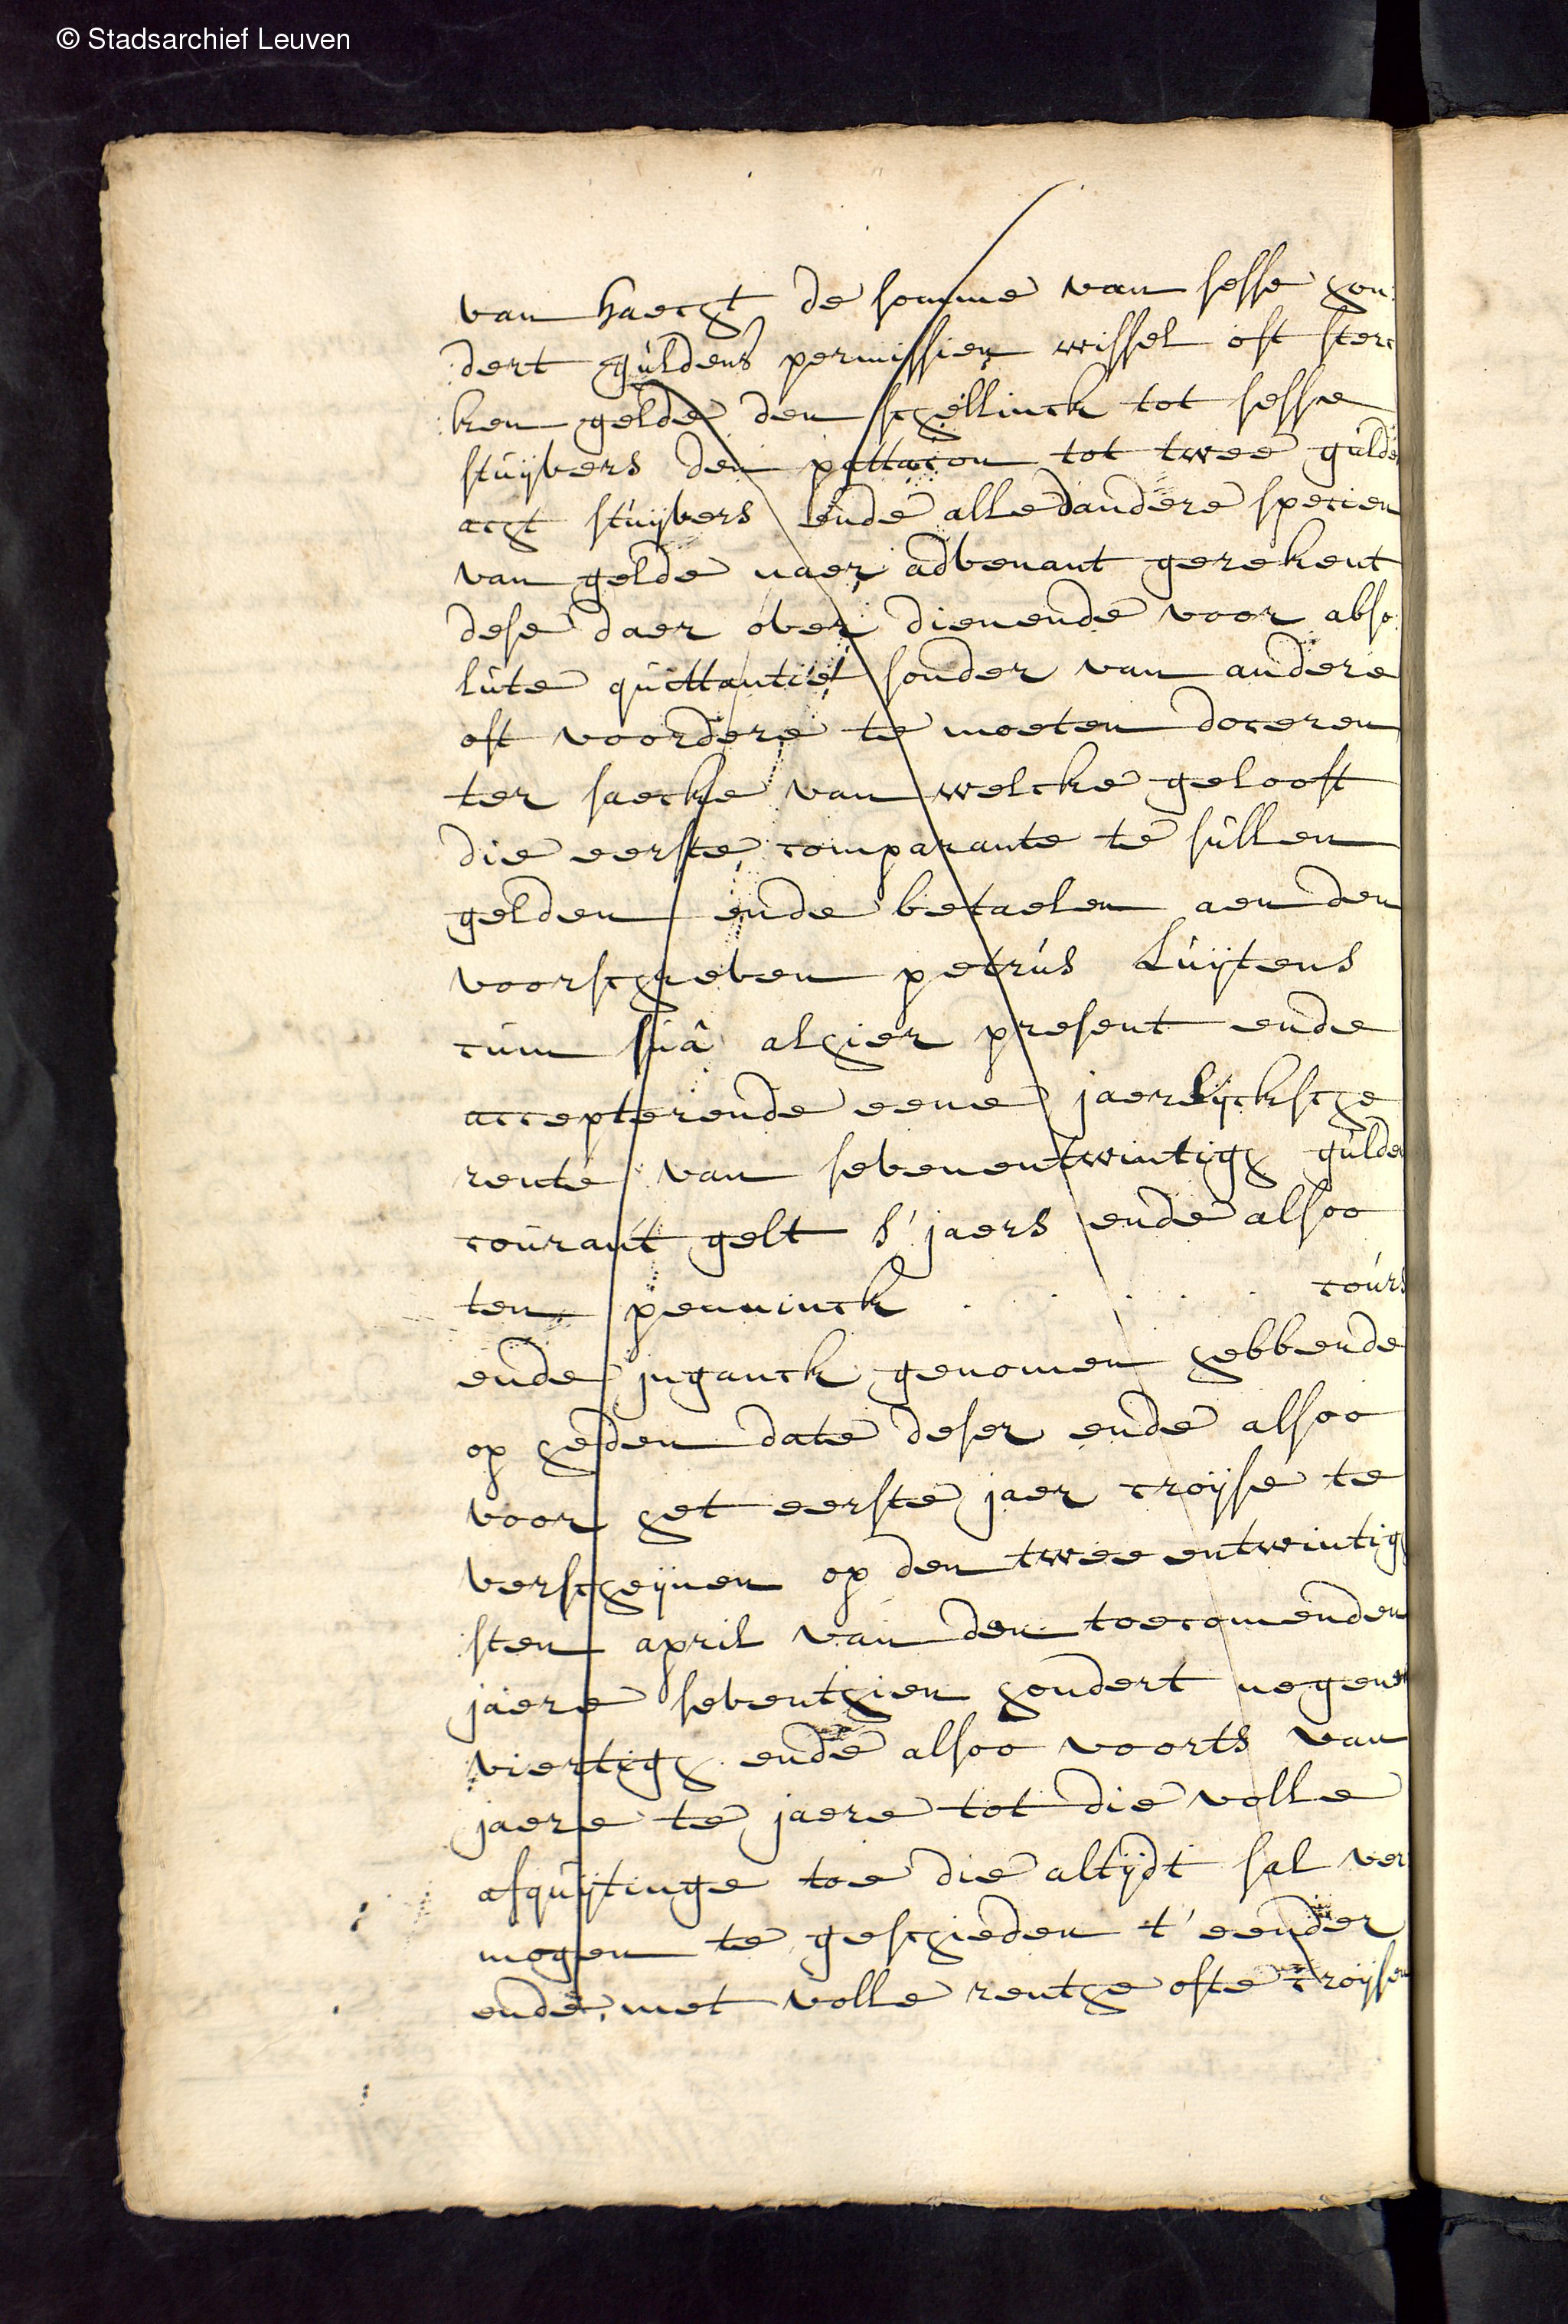 © Stadsarchief Leuven
van haecht de somme van sesse hon:
dert guldens permissien wissel oft sterc
:ken gelde den schellinck tot sesse
stuijvers den pattacon tot twee gulde
acht stuijvers ende alle dandere specien
van gelde naer advenant gerekent
dese daer over dienende voor abso:
lute quittantie sonder van andere
oft voordere te moeten doceren
ter saecke van welcke gelooft
die eerste comparante te sullen
gelden ende betaelen aen den
voorschreven petrus Luijtens
cum suâ alhier present ende
accepterende eene jaerlijcksche
rente van sevenentwintigh gulde
courant gelt s'jaers ende alsoo
ten penninck . . . . . . cours
ende inganck genomen hebbende
op heden date deser ende alsoo
voor het eerste jaer croijse te
verscheijnen op den tweeentwintigh
sten april van den toecomenden
jaere seventhien hondert negen
viertigh ende alsoo voorts van
jaere te jaere tot die volle
afquijtinge toe die altijdt sal ver
mogen te geschieden t'eender
ende met volle renthe ofte croijsen